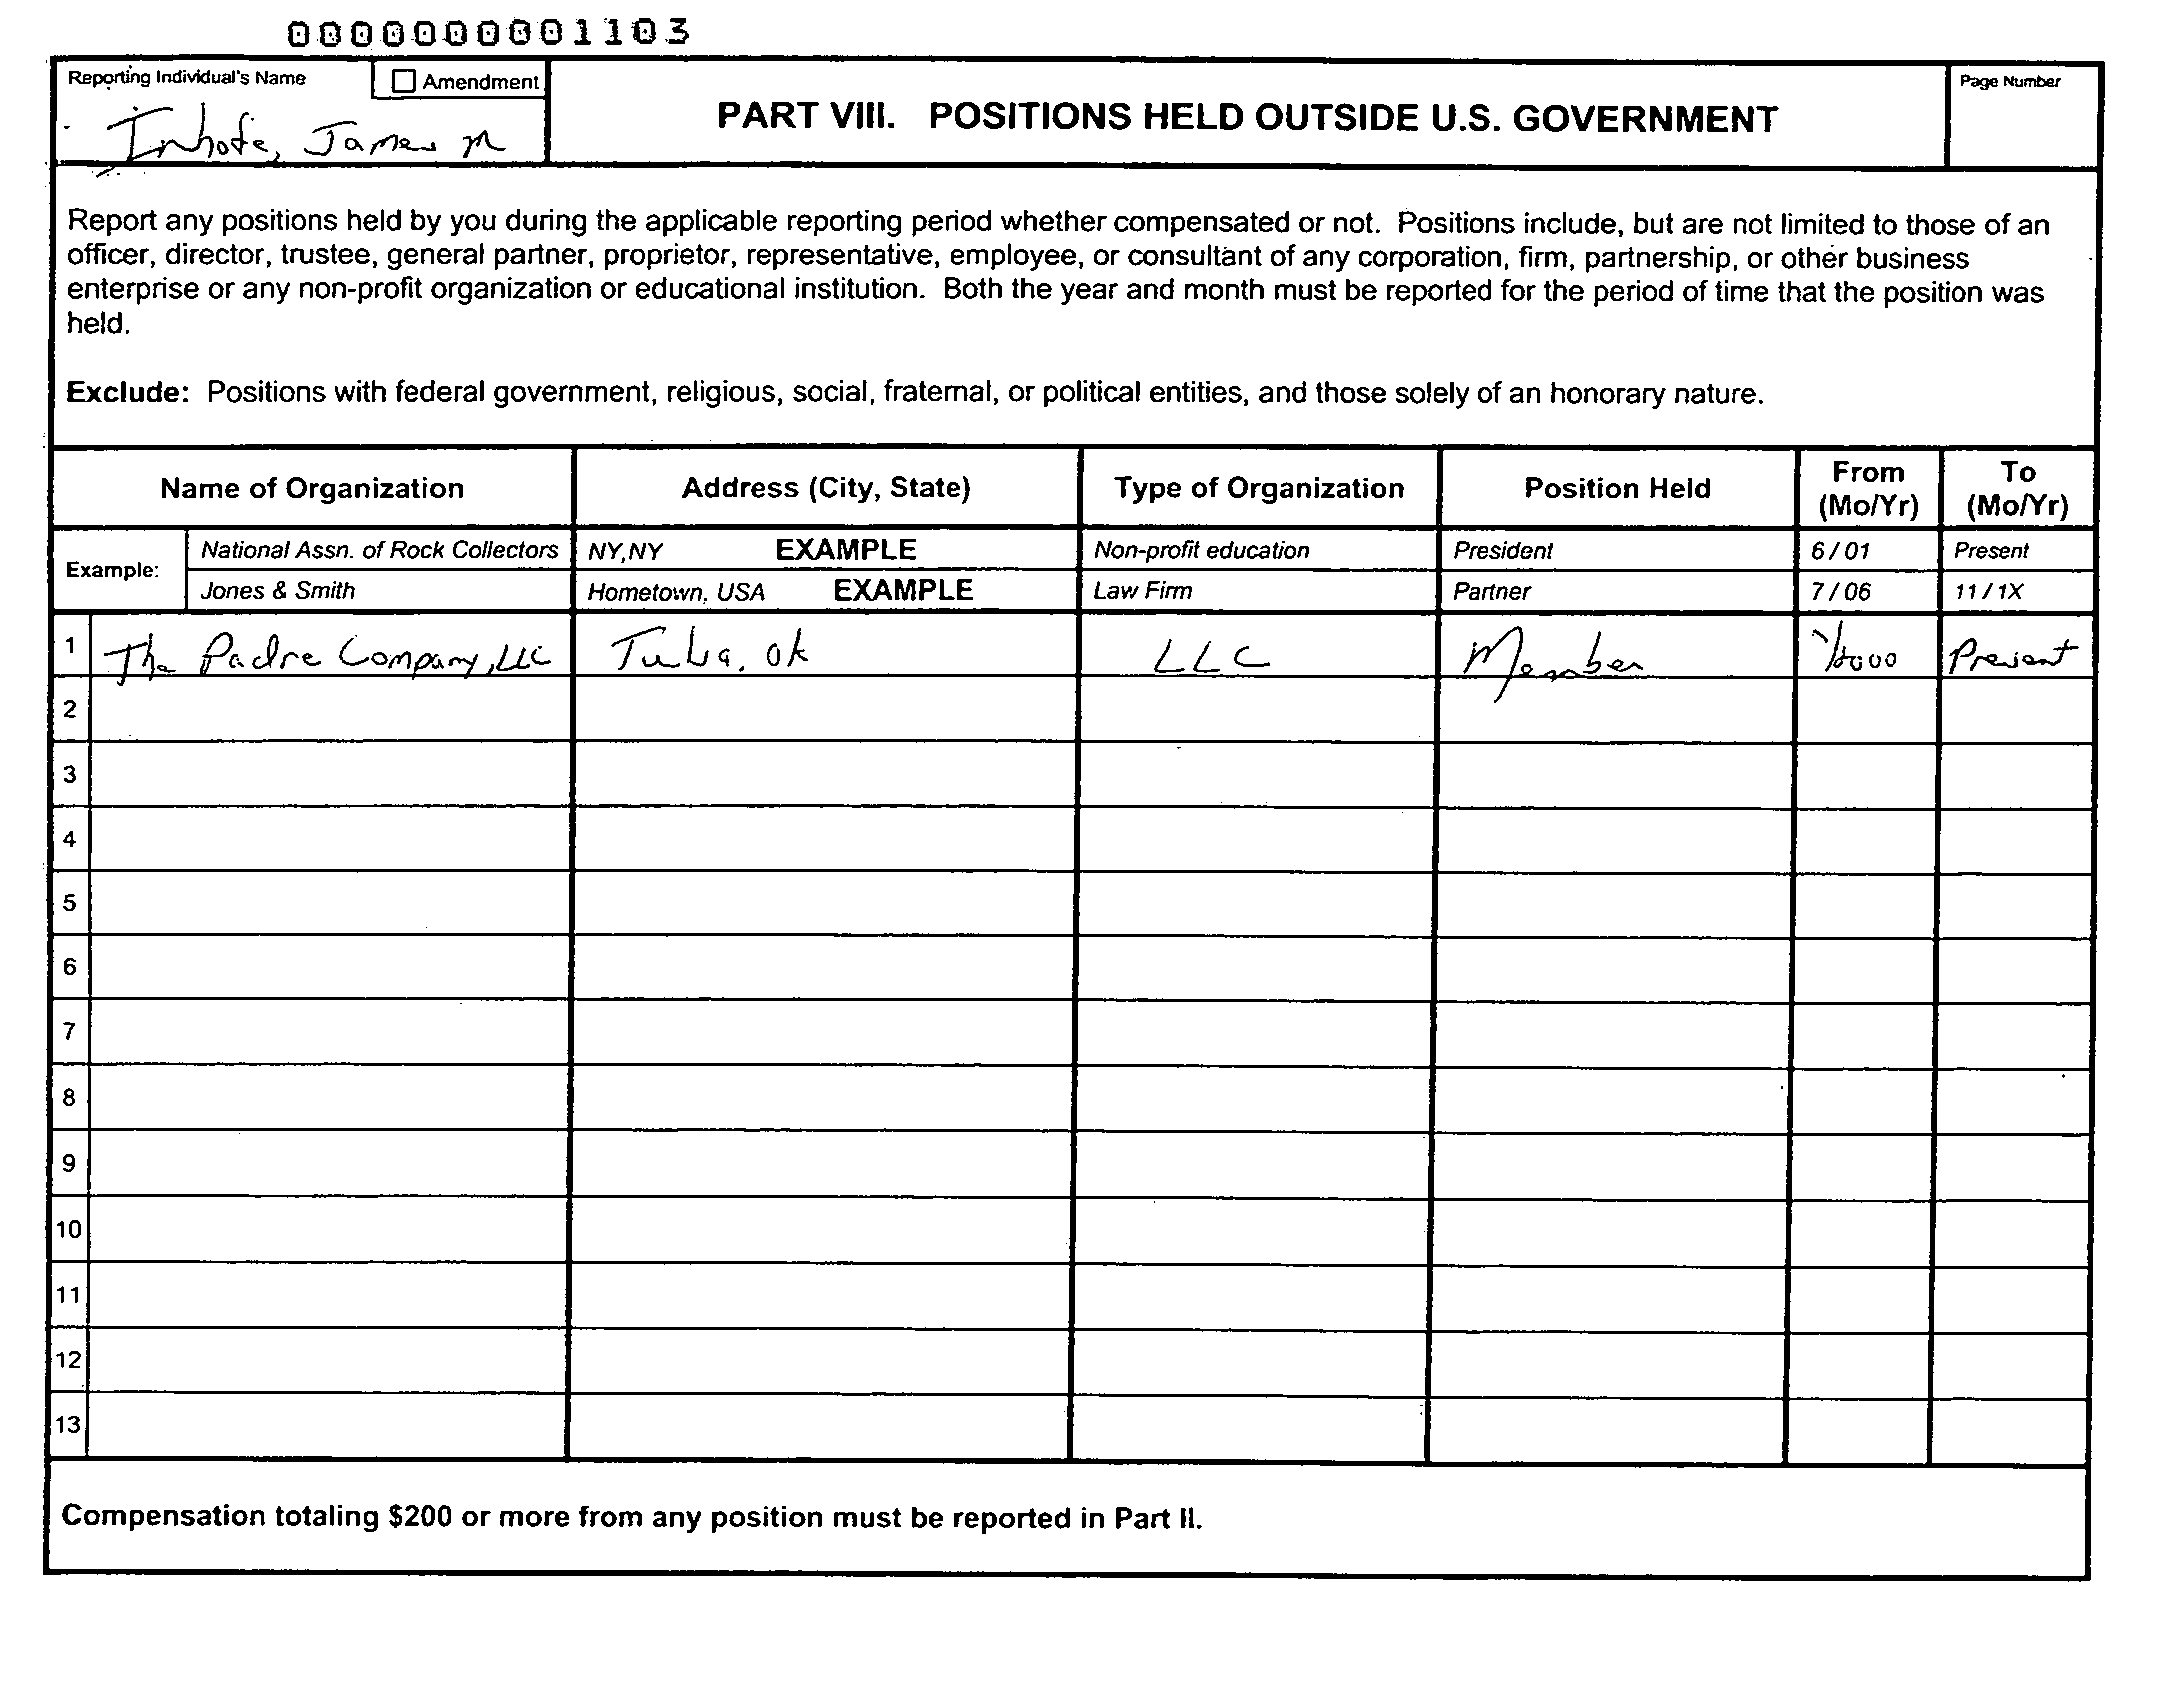 0000000001103
Reporting Individual's Name
Amendment
Inhofe, James M
PART VIII. POSITIONS HELD OUTSIDE U.S. GOVERNMENT
Page Number
Report any positions held by you during the applicable reporting period whether compensated or not. Positions include, but are not limited to those of an
officer, director, trustee, general partner, proprietor, representative, employee, or consultant of any corporation, firm, partnership, or other business
enterprise or any non-profit organization or educational institution. Both the year and month must be reported for the period of time that the position was
held.
Exclude: Positions with federal government, religious, social, fraternal, or political entities, and those solely of an honorary nature.
Name of Organization Address (City, State) Type of Organization Position Held From (Mo/Yr) To (Mo/Yr)
Example: National Assn. of Rock Collectors NY,NY EXAMPLE Non-profit education President 6 / 01 Present
Jones & Smith Hometown, USA EXAMPLE Law Firm Partner 7 / 06 11 / 1X
1 The Padre Company, LLC Tulsa, OK LLC Member Present
2
3
4
5
6
7
8
9
10
11
12
13
Compensation totaling $200 or more from any position must be reported in Part II.